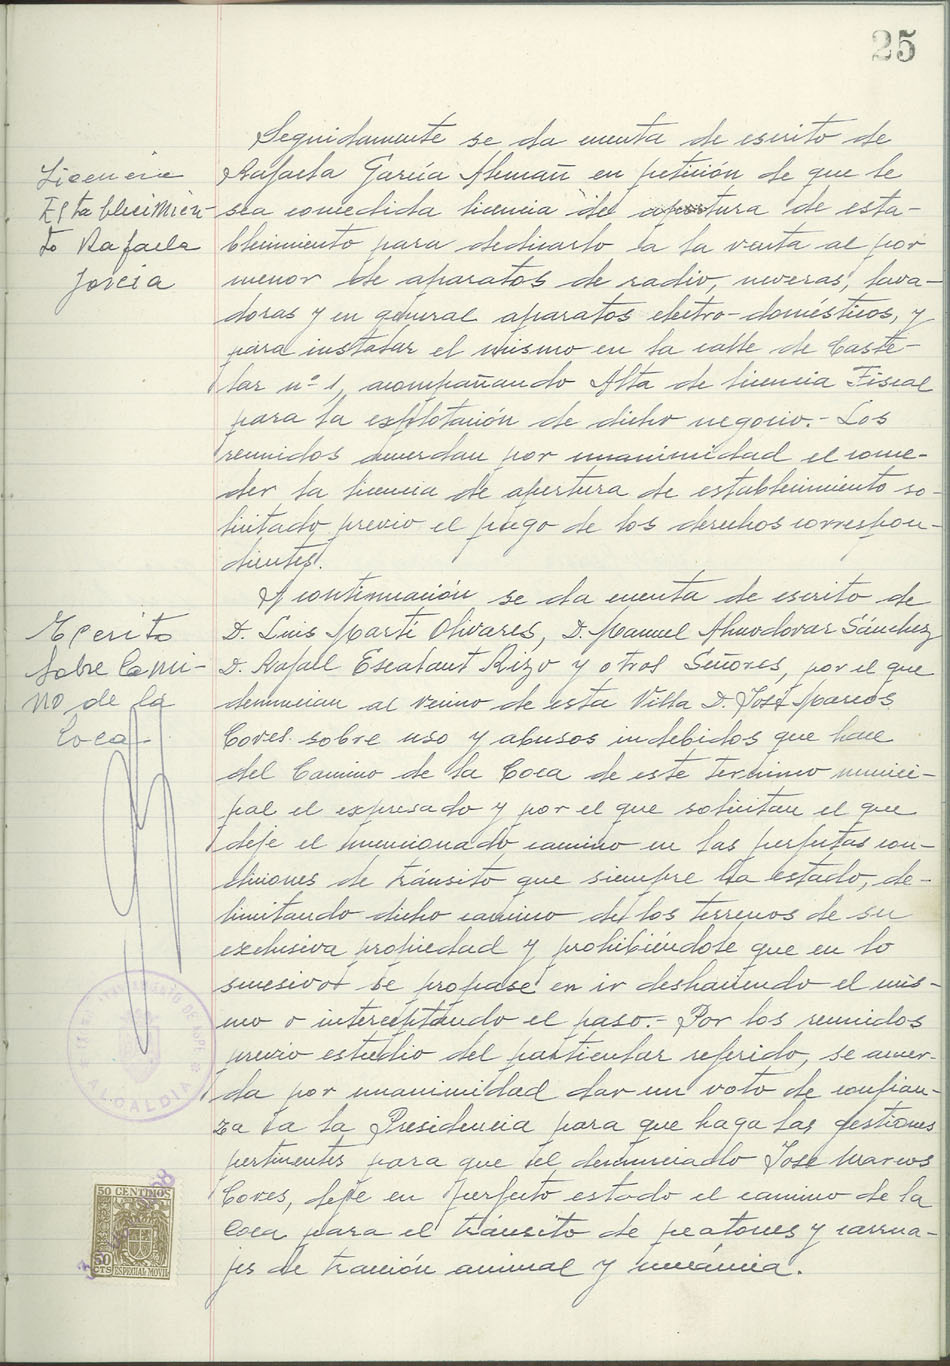 25
Licencia
Establecimien-
to Rafaela
García
Seguidamente se da cuenta de escrito de
Rafaela García Alemañ en petición de que le
sea concedida licencia de apertura de esta-
blecimiento para dedicarlo a la venta al por
menor de aparatos de radio, neveras, lava-
doras y en general aparatos electro-domésticos, y
para instalar el mismo en la calle de Caste-
lar nº 1, acompañando Alta de licencia Fiscal
para la explotación de dicho negocio.- Los
reunidos acuerdan por unanimidad el conce-
der la licencia de apertura de establecimiento so-
licitado previo el pago de los derechos correspon-
dientes.
Escrito
sobre Cami-
no de la
Coca
A continuación se da cuenta de escrito de
D. Luis Martí Olivares, D. Manuel Almodovar Sánchez
D. Rafael Escalant Rizo y otros Señores, por el que
denuncian al vecino de esta Villa D. José Marcos
Cores sobre uso y abusos indebidos que hace
del Camino de la Coca de este termino munici-
pal el expresado y por el que solicitan el que
deje el mencionado camino en las perfectas con-
diciones de tránsito que siempre ha estado, de-
limitando dicho camino de los terrenos de su
exclusiva propiedad y prohibiéndole que en lo
sucesivo se propase en ir deshaciendo el mis-
mo o interceptando el paso.- Por los reunidos
previo estudio del particular referido, se acuer-
da por unanimidad dar un voto de confian-
za a la Presidencia para que haga las gestiones
pertinentes para que el denunciado José Marcos
Cores, deje en perfecto estado el camino de la
Coca para el tránsito de peatones y carrua-
jes de tracción animal y mecánica.
AYUNTAMIENTO DE
ALCALDIA
50 CENTIMOS
50
CTS
ESPECIAL MOVIL